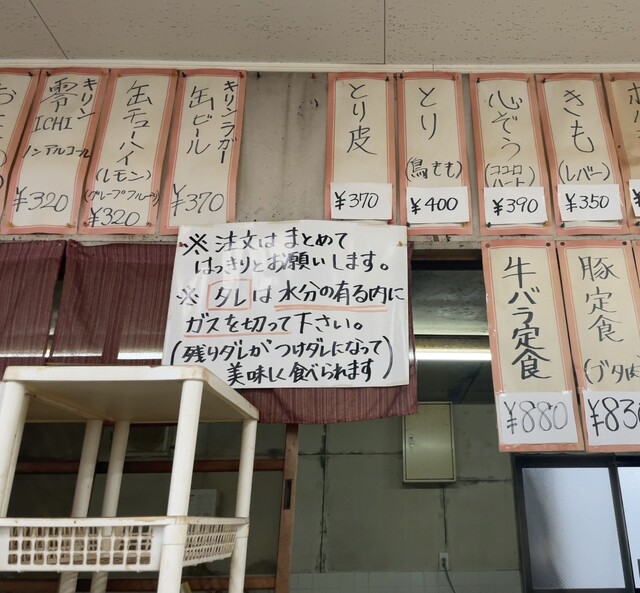 キリン
零ICHI
ノンアルコール
¥320
缶チューハイ
(レモン)
(グレープフルーツ)
¥320
キリンラガー
缶ビール
¥370
とり皮
¥370
とり
(鳥もも)
¥400
心ぞう
(ココロ
ハート)
¥390
きも
(レバー)
¥350
※ 注文はまとめて
はっきりとお願いします。
※ タレは水分の有る内に
ガスを切って下さい。
(残りダレがつけダレになって
美味しく食べられます)
牛バラ定食
¥880
豚定食
(ブタ肉
¥830